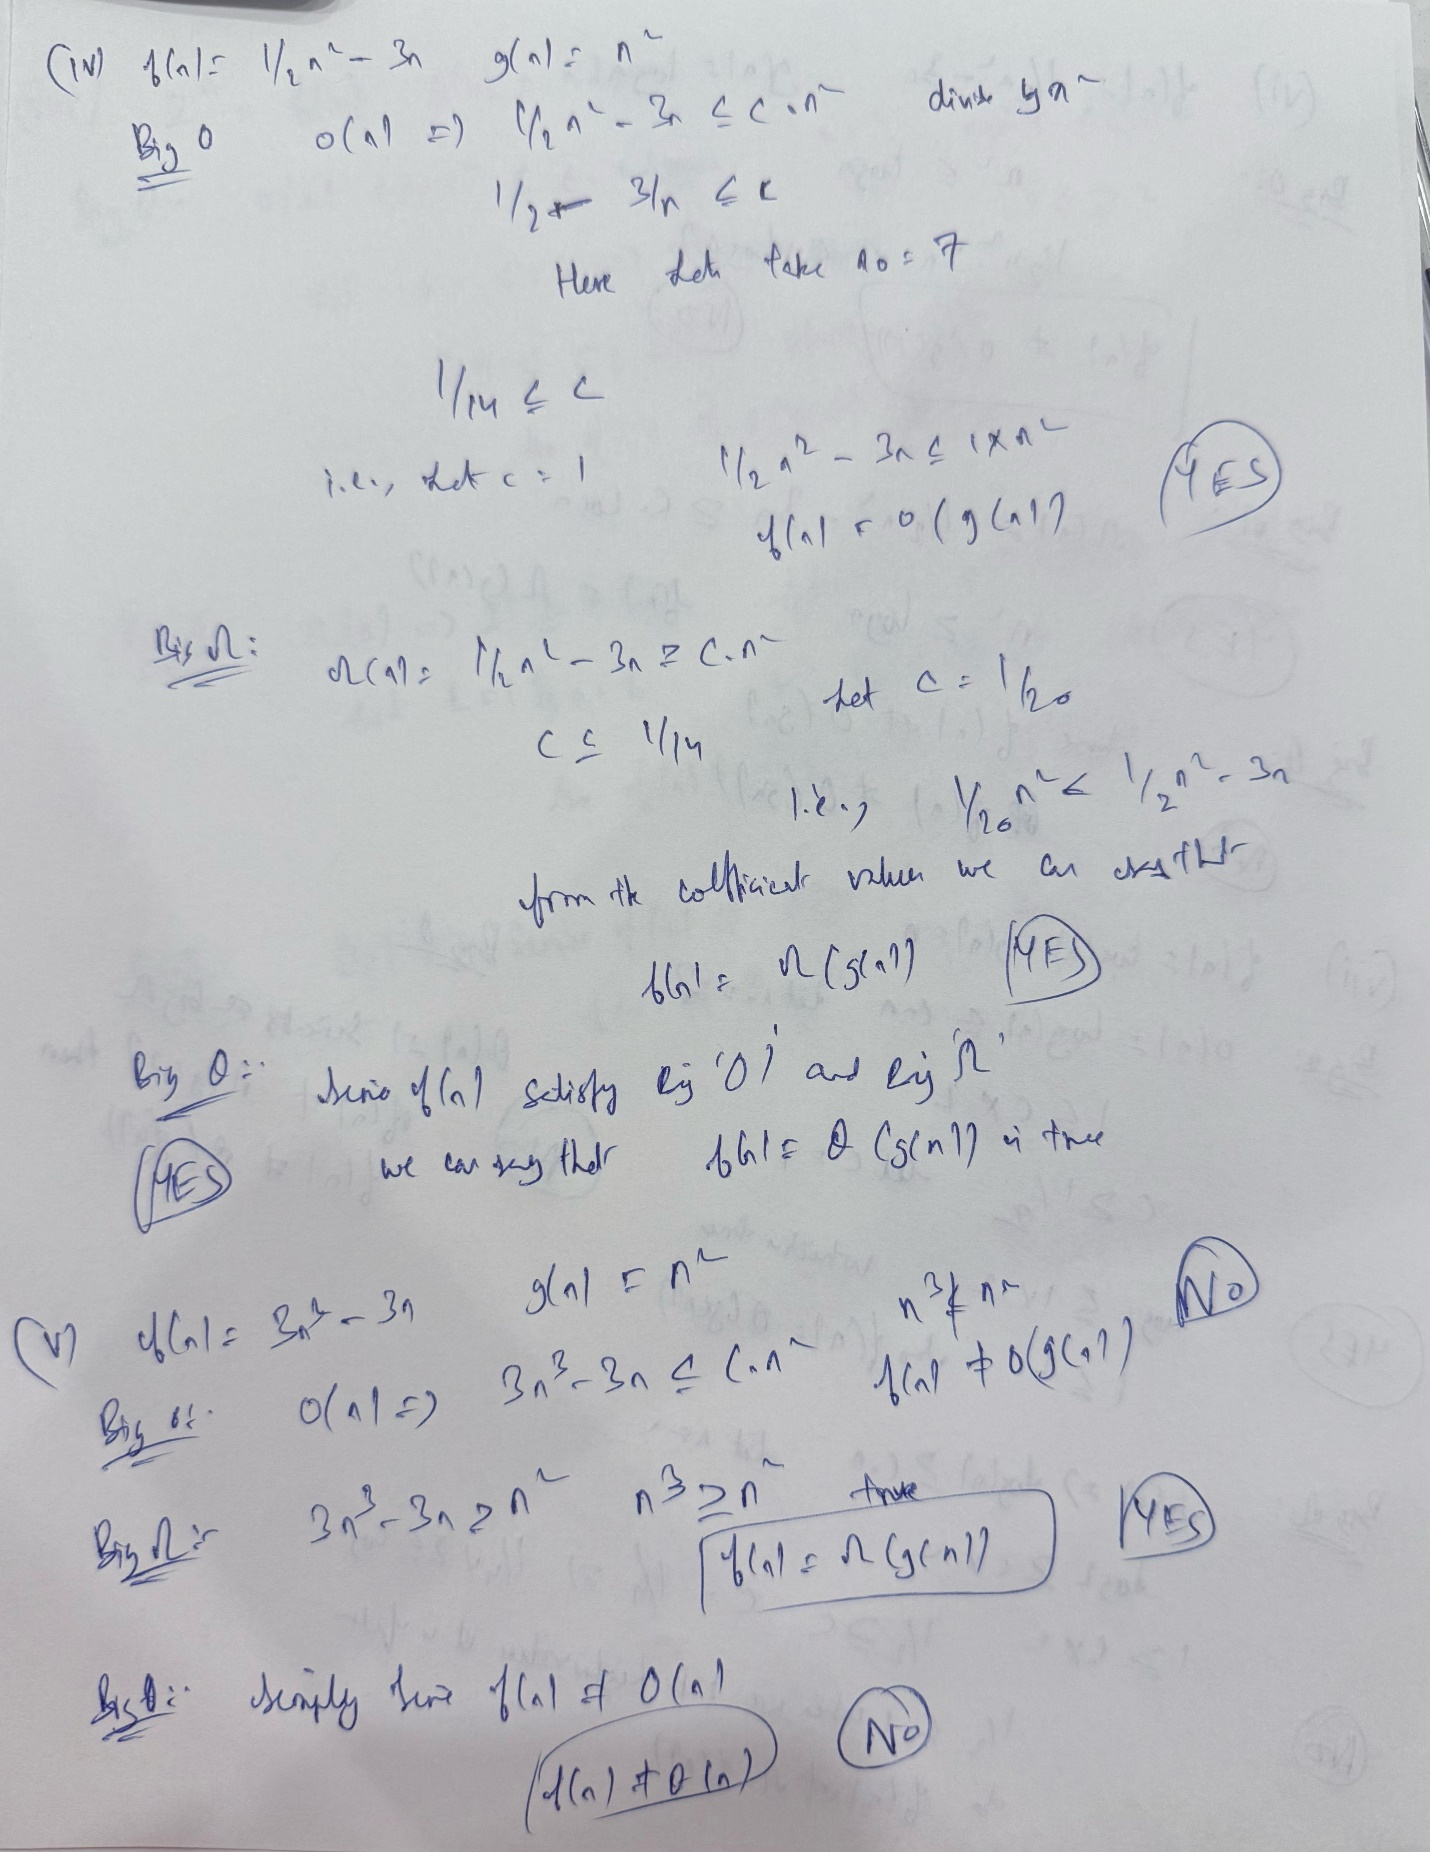 (iv) f(n) = 1/2 n² - 3n g(n) = n²
Big O O(n) => 1/2 n² - 3n ≤ c.n² divide by n²
1/2 - 3/n ≤ c
Here Let take n0 = 7
1/14 ≤ c
i.e., Let c = 1 1/2 n² - 3n ≤ 1×n²
f(n) = O(g(n)) YES
Big Ω: Ω(n) = 1/2 n² - 3n ≥ c.n²
c ≤ 1/14 Let c = 1/20
i.e., 1/20 n² < 1/2 n² - 3n
from the coefficient values we can say that
f(n) = Ω(g(n)) YES
Big θ:- f(n) satisfy Big 'O' and Big 'Ω'
YES we can say that f(n) = θ(g(n)) is true
(v) f(n) = 3n³ - 3n g(n) = n²
Big O:- O(n) => 3n³ - 3n ≤ c.n² n³ ≰ n² f(n) ≠ O(g(n)) NO
Big Ω:- 3n³ - 3n ≥ n² n³ ≥ n² true
f(n) = Ω(g(n)) YES
Big θ:- Simply f(n) ≠ O(n)
f(n) ≠ θ(n) NO